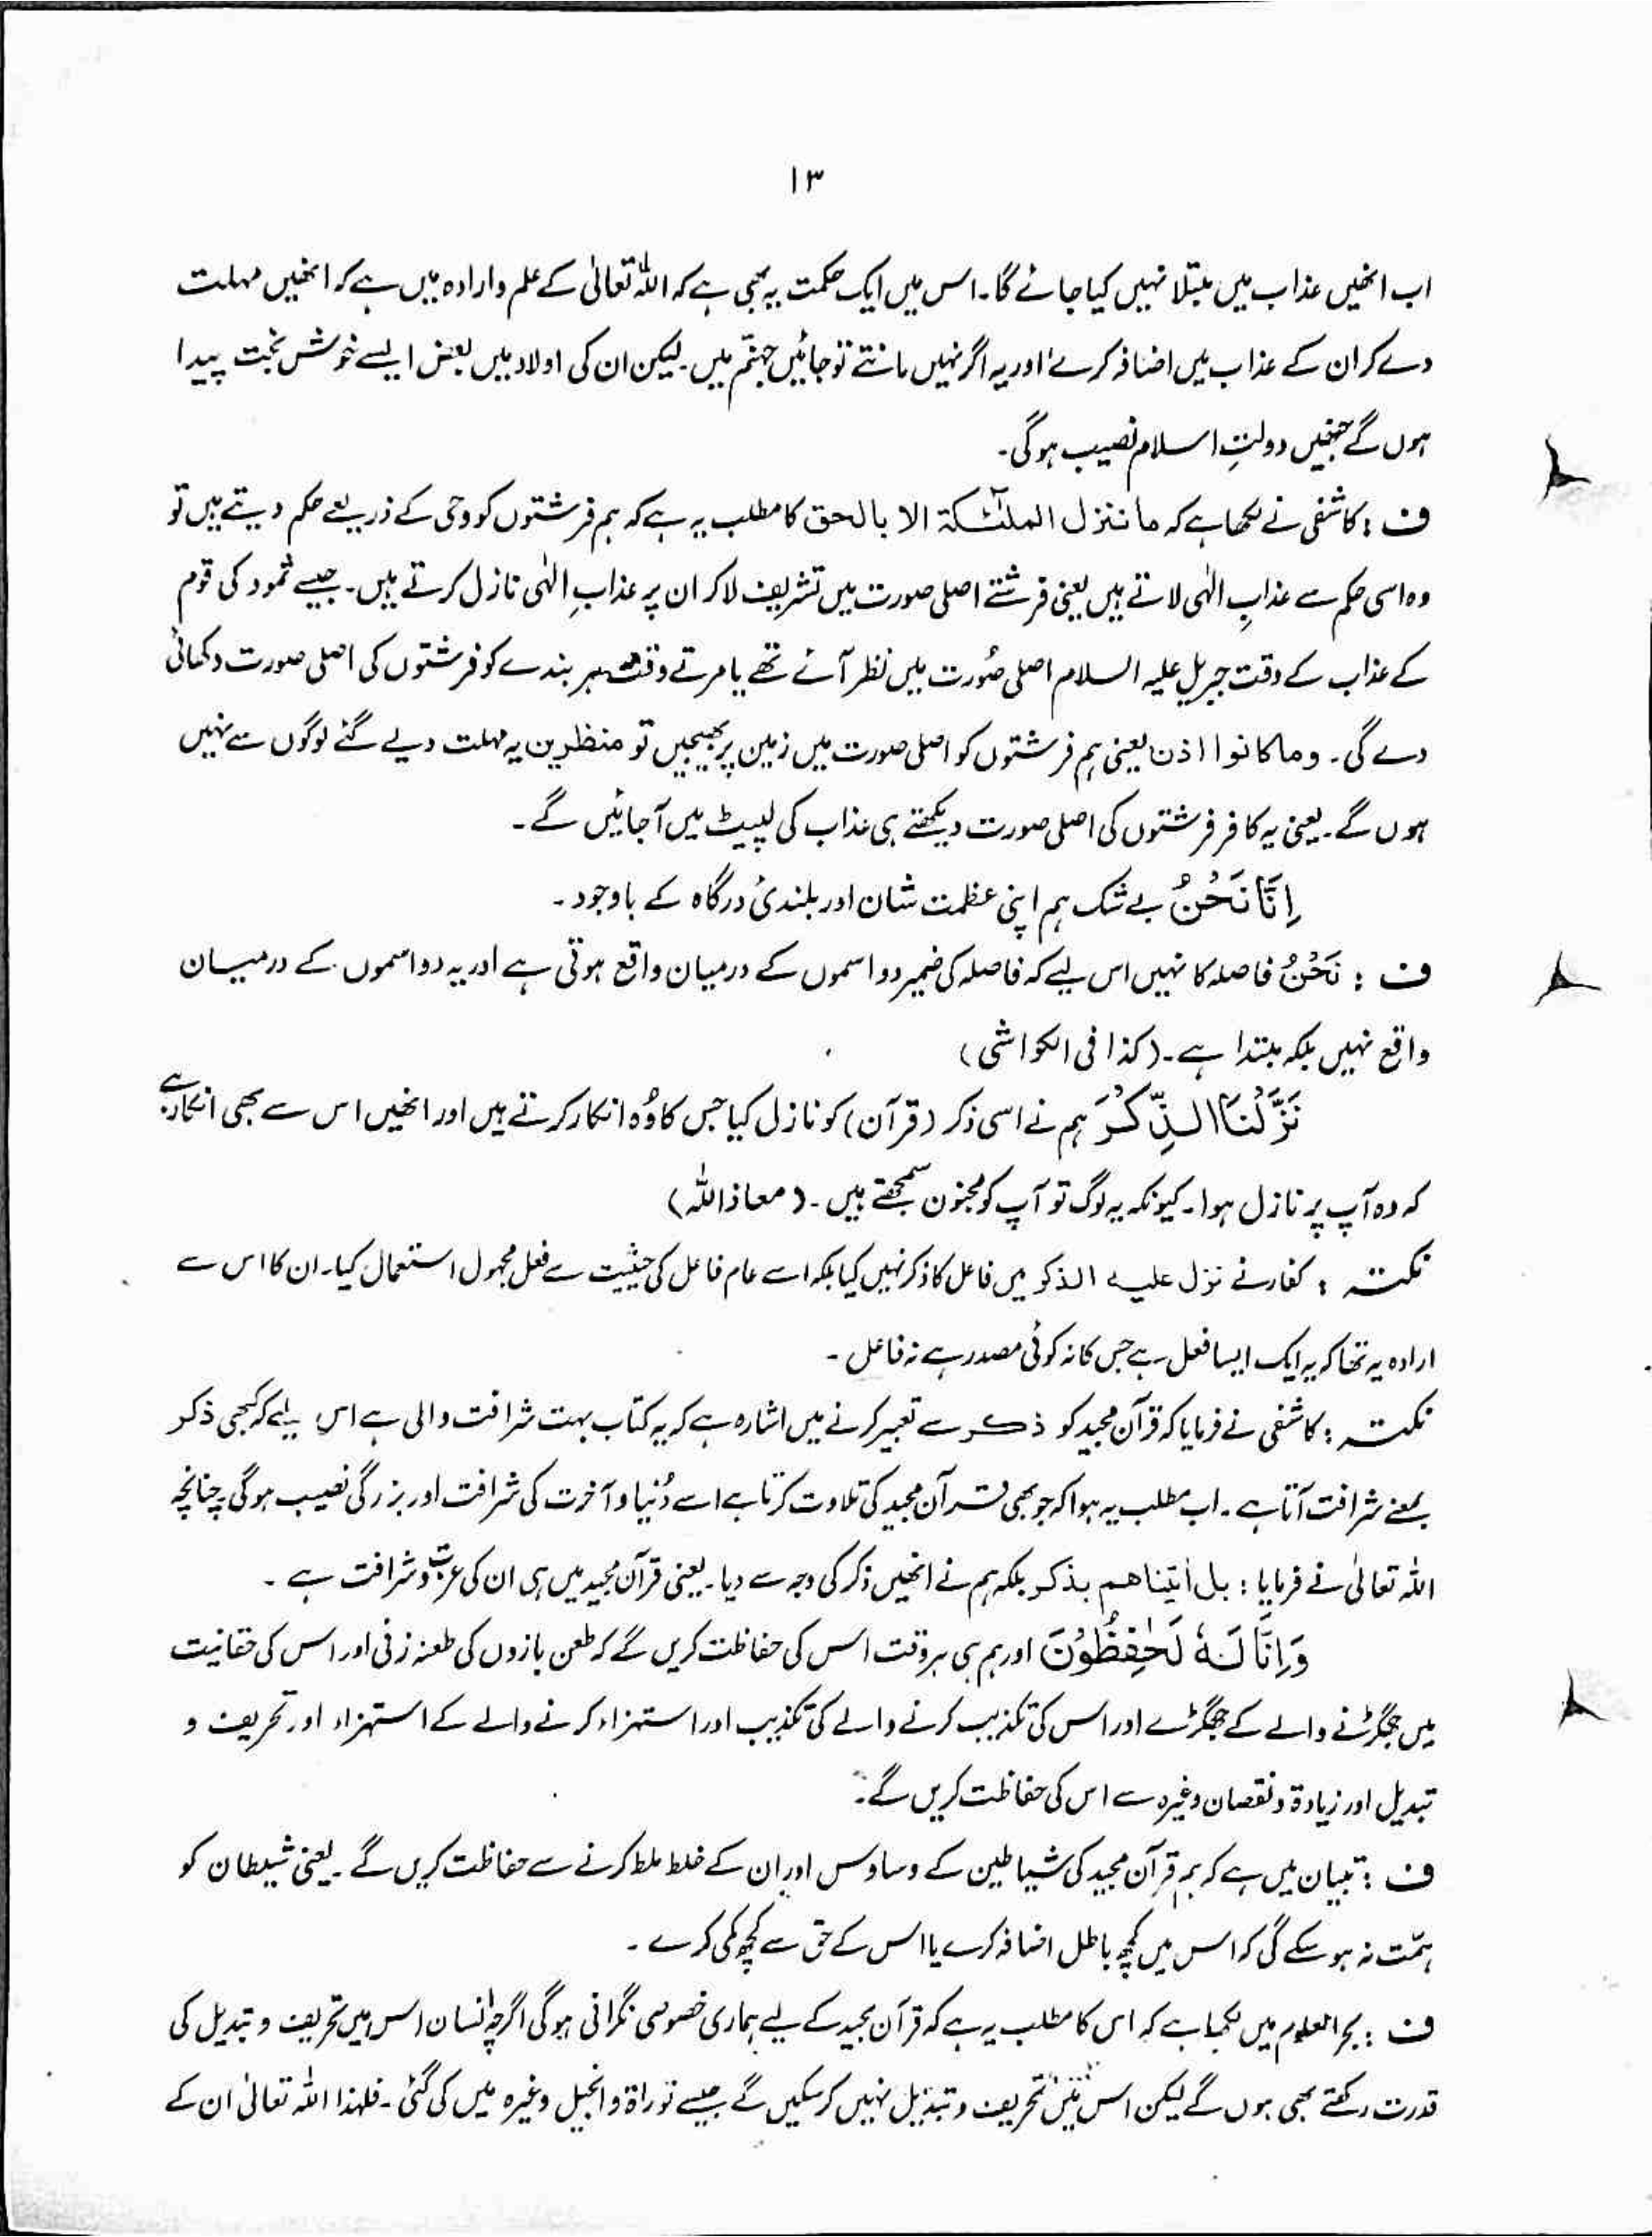 ۱۳
اب انھیں عذاب میں مبتلا نہیں کیا جائے گا۔ اس میں ایک حکمت یہ بھی ہے کہ اللہ تعالیٰ کے علم و ارادہ میں ہے کہ انھیں مہلت
دے کر ان کے عذاب میں اضافہ کرے، اور یہ اگر نہیں مانتے تو جائیں جہنّم میں۔ لیکن ان کی اولاد میں بعض ایسے خوش بخت پیدا
ہوں گے جنھیں دولتِ اسلام نصیب ہوگی۔
ف : کاشفی نے لکھا ہے کہ ما ننزل الملٰٓئکۃ الا بالحق کا مطلب یہ ہے کہ ہم فرشتوں کو وحی کے ذریعے حکم دیتے ہیں تو
وہ اسی حکم سے عذابِ الٰہی لاتے ہیں یعنی فرشتے اصلی صورت میں تشریف لا کر ان پر عذابِ الٰہی نازل کرتے ہیں۔ جیسے ثمود کی قوم
کے عذاب کے وقت جبریل علیہ السلام اصلی صُورت میں نظر آئے تھے یا مرتے وقت ہر بندے کو فرشتوں کی اصلی صورت دکھائی
دے گی۔ وما کانوا اذن یعنی ہم فرشتوں کو اصلی صورت میں زمین پر بھیجیں تو منظرین یہ مہلت دیے گئے لوگوں سے نہیں
ہوں گے۔ یعنی یہ کافر فرشتوں کی اصلی صورت دیکھتے ہی عذاب کی لپیٹ میں آ جائیں گے۔
اِنَّا نَحْنُ بے شک ہم اپنی عظمت شان اور بلندیٔ درگاہ کے باوجود۔
ف : نَحْنُ فاصلہ کا نہیں اس لیے کہ فاصلہ کی ضمیر دو اسموں کے درمیان واقع ہوتی ہے اور یہ دو اسموں کے درمیان
واقع نہیں بلکہ مبتدا ہے۔ (کذا فی الکواشی)
نَزَّلْنَا الذِّکْرَ ہم نے اسی ذکر (قرآن) کو نازل کیا جس کا وُہ انکار کرتے ہیں اور انھیں اس سے بھی انکار ہے
کہ وہ آپ پر نازل ہوا۔ کیونکہ یہ لوگ تو آپ کو مجنون سمجھتے ہیں۔ (معاذ اللہ)
نکتہ : کفار نے نزل علیہ الذکر میں فاعل کا ذکر نہیں کیا بلکہ اسے عام فاعل کی حیثیت سے فعل مجہول استعمال کیا۔ ان کا اس سے
ارادہ یہ تھا کہ یہ ایک ایسا فعل ہے جس کا نہ کوئی مصدر ہے نہ فاعل۔
نکتہ : کاشفی نے فرمایا کہ قرآن مجید کو ذکر سے تعبیر کرنے میں اشارہ ہے کہ یہ کتاب بہت شرافت والی ہے اس لیے کہ کبھی ذکر
بمعنے شرافت آتا ہے۔ اب مطلب یہ ہوا کہ جو بھی قرآن مجید کی تلاوت کرتا ہے اسے دُنیا و آخرت کی شرافت اور بزرگی نصیب ہوگی چنانچہ
اللہ تعالیٰ نے فرمایا : بل اٰتیناھم بذکر بلکہ ہم نے انھیں ذکر کی وجہ سے دیا۔ یعنی قرآن مجید میں ہی ان کی عزت و شرافت ہے۔
وَاِنَّا لَہٗ لَحٰفِظُوْنَ اور ہم ہی ہر وقت اس کی حفاظت کریں گے کہ طعن بازوں کی طعنہ زنی اور اس کی حقانیت
میں جھگڑنے والے کے جھگڑے اور اس کی تکذیب کرنے والے کی تکذیب اور استہزاء کرنے والے کے استہزاء اور تحریف و
تبدیل اور زیادۃ و نقصان وغیرہ سے اس کی حفاظت کریں گے۔
ف : تبیان میں ہے کہ ہم قرآن مجید کی شیاطین کے وساوس اور ان کے خلط ملط کرنے سے حفاظت کریں گے۔ یعنی شیطان کو
ہمّت نہ ہو سکے گی کہ اس میں کچھ باطل اضافہ کرے یا اس کے حق سے کچھ کمی کرے۔
ف : بحر العلوم میں لکھا ہے کہ اس کا مطلب یہ ہے کہ قرآن مجید کے لیے ہماری خصوصی نگرانی ہوگی اگرچہ انسان اس میں تحریف و تبدیل کی
قدرت رکھتے بھی ہوں گے لیکن اس میں تحریف و تبدیل نہیں کر سکیں گے جیسے توراۃ و انجیل وغیرہ میں کی گئی۔ فلہذا اللہ تعالیٰ ان کے